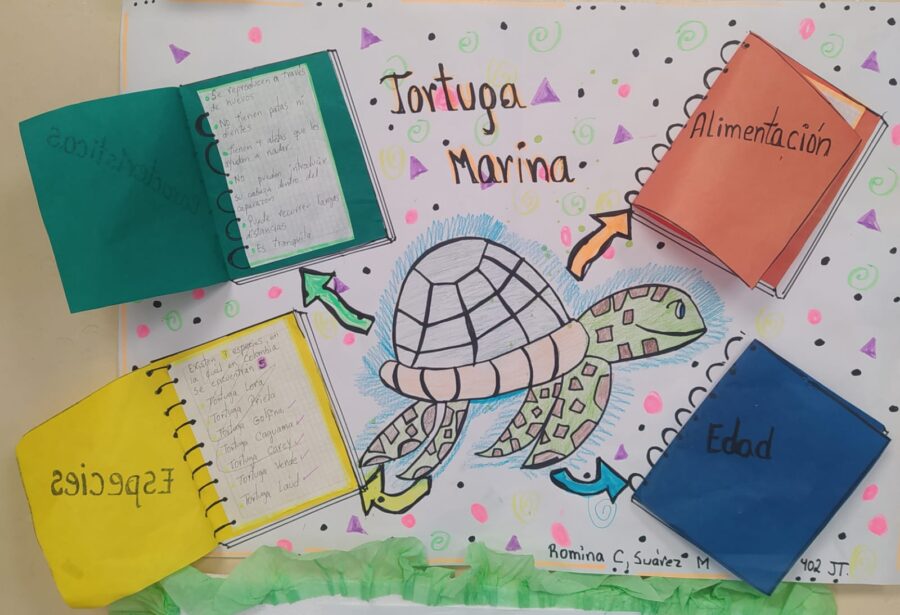 Tortuga
Marina
Características
• Se reproducen a traves
de huevos
• No tienen patas ni
dientes
• Tienen 4 aletas que les
ayudan a nadar
• No pueden introducir
su cabeza dentro del
caparazón
• Puede recorrer largas
distancias
• Es tranquila
Alimentación
Especies
Existen 7 especies, en
la cual en Colombia
se encuentran 5
Tortuga Lora
Tortuga
Tortuga Golfina
Tortuga Caguama
Tortuga Carey
Tortuga Verde
Tortuga Laúd
Edad
Romina C, Suárez M
402 JT.